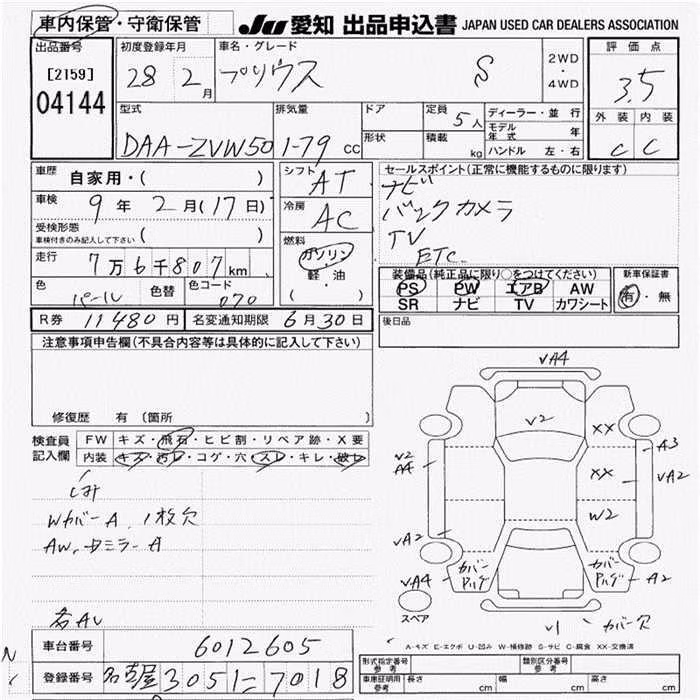 車内保管・守衛保管
JU 愛知 出品申込書 JAPAN USED CAR DEALERS ASSOCIATION
出品番号
[2159]
04144
初度登録年月
28 2月
車名・グレード
プリウス S
2WD・4WD
評価点
3.5
外装 内装
C C
型式
DAA-ZVW50
排気量
1-79 cc
ドア
形状
定員
5人
積載
kg
ディーラー・並行
モデル年式 年
ハンドル 左・右
車歴
自家用・( )
車検
9年 2月(17日)
受検形態
車検付きのみ記入して下さい ( )
走行
7万6千807km
色
パール
色替
色コード
070
シフト
AT
冷房
AC
燃料
ガソリン・軽・油
( )
セールスポイント(正常に機能するものに限ります)
ナビ
バックカメラ
TV
ETC.
装備品(純正品に限り○をつけてください)
PS PW エアB AW
SR ナビ TV カワシート
新車保証書
有・無
R券 11480円 名変通知期限 6月30日
後日品
注意事項申告欄(不具合内容等は具体的に記入して下さい)
修復歴 有 (箇所 )
検査員記入欄
FW キズ・飛石・ヒビ割・リペア跡・X要
内装 キズ・汚レ・コゲ・穴・スレ・キレ・破レ
シミ
WカバーA. 1枚欠
AW. ミラーA
各AU
VA4
V2
XX
A3
V2
A4
XX
VA2
VA2
W2
カバー
ハルゲ
カバー
ハルゲ
VA4
A2
スペア
V1 カバー欠
A-キズ E-エクボ U-凹み W-補修跡 S-サビ C-腐食 XX-交換済
車台番号 6012605
登録番号 名古屋305に7018
形式指定番号 参考
類別区分番号 参考
車庫証明用 参考 長さ cm 幅 cm 高さ cm